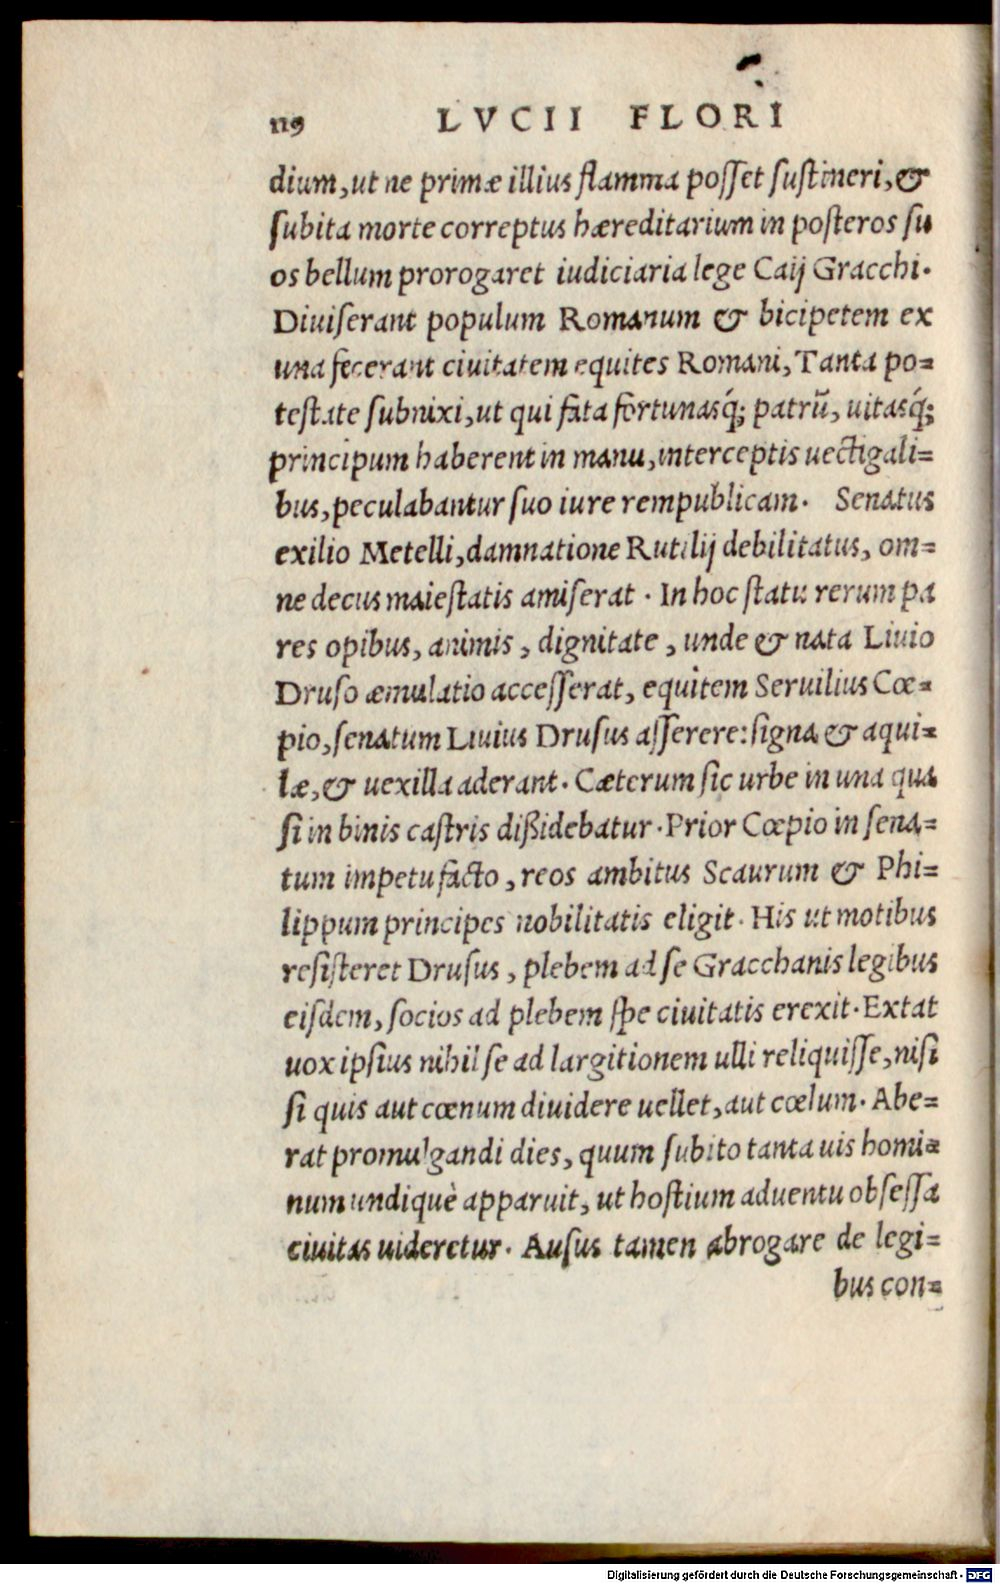 119 LVCII FLORI
dium, ut ne primæ illius flamma posſet ſuſtineri, &
ſubita morte correptus hæreditarium in poſteros ſu
os bellum prorogaret iudiciaria lege Caij Gracchi.
Diuiſerant populum Romanum & bicipetem ex
una fecerant ciuitatem equites Romani, Tanta po=
teſtate ſubnixi, ut qui fata fortunasq́; patrũ, uitasq́;
principum haberent in manu, interceptis uectigali=
bus, peculabantur ſuo iure rempublicam. Senatus
exilio Metelli, damnatione Rutilij debilitatus, om=
ne decus maieſtatis amiſerat. In hoc ſtatu rerum pa
res opibus, animis, dignitate, unde & nata Liuio
Druſo æmulatio acceſſerat, equitem Seruilius Cœ=
pio, ſenatum Liuius Druſus aſſerere: ſigna & aqui=
læ, & uexilla aderant. Cæterum ſic urbe in una qua
ſi in binis caſtris dißidebatur. Prior Cœpio in ſena=
tum impetu facto, reos ambitus Scaurum & Phi=
lippum principes nobilitatis eligit. His ut motibus
reſiſteret Druſus, plebem ad ſe Gracchanis legibus
eiſdem, ſocios ad plebem ſpe ciuitatis erexit. Extat
uox ipſius nihil ſe ad largitionem ulli reliquiſſe, niſi
ſi quis aut cœnum diuidere uellet, aut cœlum. Abe=
rat promulgandi dies, quum ſubito tanta uis homi=
num undiquè apparuit, ut hoſtium aduentu obſeſſa
ciuitas uideretur. Auſus tamen abrogare de legi=
bus con=
Digitalisierung gefördert durch die Deutsche Forschungsgemeinschaft - DFG